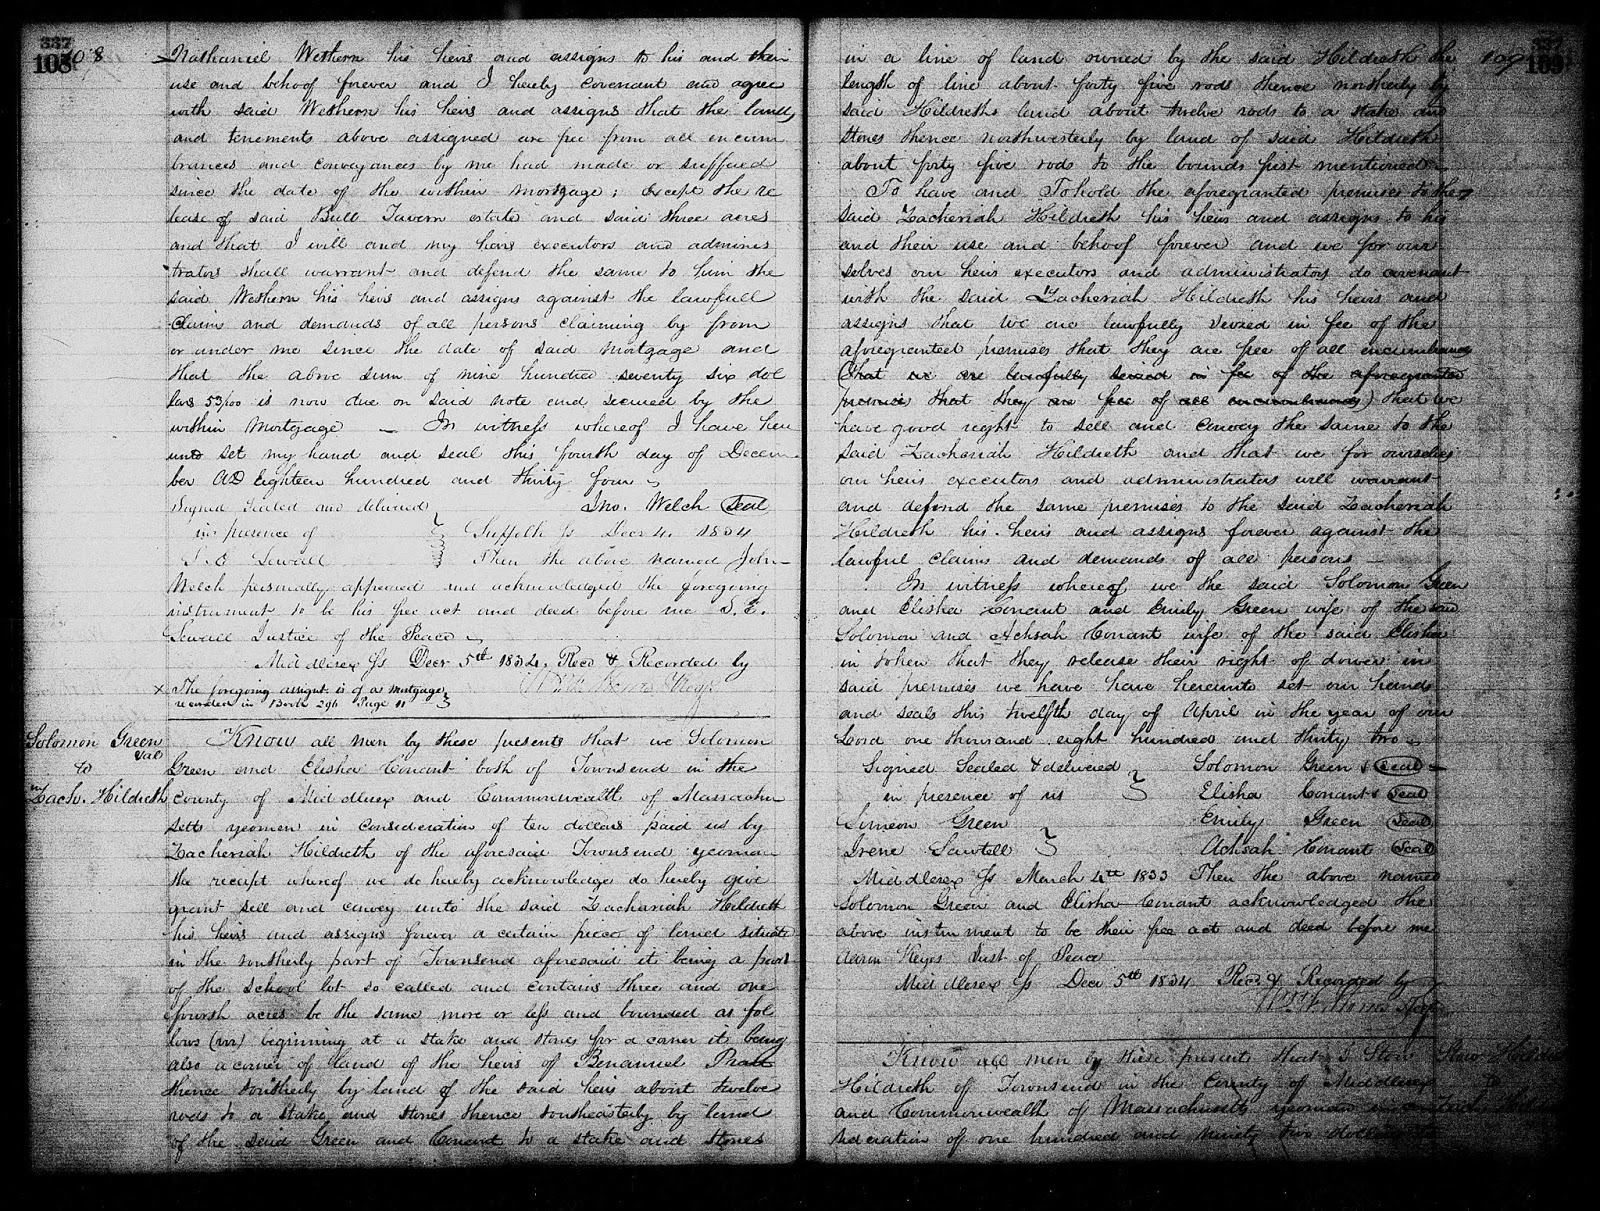 337
108
108
Nathaniel Wethern his heirs and assigns to his and their
use and behoof forever and I hereby covenant and agree
with said Wethern his heirs and assigns that the lands
and tenements above assigned are free from all incum
brances and conveyances by me had made or suffered
since the date of the within mortgage; except the re
lease of said Bull Tavern estate and said three acres
and that I will and my heirs executors and adminis
trators shall warrant and defend the same to him the
said Wethern his heirs and assigns against the lawfull
claims and demands of all persons claiming by from
or under me since the date of said mortgage and
that the above sum of nine hundred seventy six dol
lars 53/100 is now due on said note and secured by the
within mortgage — In witness whereof I have here
unto set my hand and seal this fourth day of Decem
ber AD Eighteen hundred and thirty four
Signed sealed and delivered } Jno. Welch (seal)
in presence of } Suffolk ss Decr 4. 1834
S. E Sewall } Then the above named John
Welch personally appeared and acknowledged the foregoing
instrument to be his free act and deed before me S. E.
Sewall Justice of the Peace
Middlesex ss Decr 5th 1834. Recd & Recorded by
x The foregoing assignt. is of a mortgage
recorded in Book 296 Page 11 }
Solomon Green
et al
to
Zach. Hildreth
Know all men by these presents that we Solomon
Green and Elisha Conant both of Townsend in the
County of Middlesex and Commonwealth of Massachu
setts yeomen in consideration of ten dollars paid us by
Zacheriah Hildreth of the aforesaid Townsend yeoman
the receipt whereof we do hereby acknowledge do hereby give
grant sell and convey unto the said Zachariah Hildreth
his heirs and assigns forever a certain piece of land situate
in the southerly part of Townsend aforesaid it being a part
of the school lot so called and contains three and one
fourth acres be the same more or less and bounded as fol
lows (viz) beginning at a stake and stones for a corner it being
also a corner of land of the heirs of Benanuel Pratt
thence southerly by land of the said heirs about twelve
rods to a stake and stones thence southeasterly by land
of the said Green and Conant to a stake and stones
337
109
109
in a line of land owned by the said Hildreth the
length of line about forty five rods thence northerly by
said Hildreths land about twelve rods to a stake and
stones thence northwesterly by land of said Hildreth
about forty five rods to the bounds first mentioned
To have and To hold the aforegranted premises to the
said Zacheriah Hildreth his heirs and assigns to his
and their use and behoof forever and we for our
selves our heirs executors and administrators do covenant
with the said Zacheriah Hildreth his heirs and
assigns that we are lawfully seized in fee of the
aforegranted premises that they are free of all encumbrances
(that we are lawfully seized in fee of the aforegranted
premises that they are free of all encumbrances) that we
have good right to sell and convey the same to the
said Zachariah Hildreth and that we for ourselves
our heirs executors and administrators will warrant
and defend the same premises to the said Zacheriah
Hildreth his heirs and assigns forever against the
lawful claims and demands of all persons
In witness whereof we the said Solomon Green
and Elisha Conant and Emily Green wife of the said
Solomon and Achsah Conant wife of the said Elisha
in token that they release their right of dower in
said premises we have have hereunto set our hands
and seals this twelfth day of April in the year of our
Lord one thousand eight hundred and thirty two
Signed Sealed & delivered } Solomon Green (seal)
in presence of us } Elisha Conant (seal)
Simeon Green } Emily Green (seal)
Irene Sawtell } Achsah Conant (seal)
Middlesex ss March 4th 1833 Then the above named
Solomon Green and Elisha Conant acknowledged the
above instrument to be their free act and deed before me
Aaron Keyes Just of Peace
Middlesex ss Decr 5th 1834 Recd & Recorded by
Know all men by these present that I Stow
Hildreth of Townsend in the County of Middlesex
and Commonwealth of Massachusetts yeoman in con
sideration of one hundred and ninety two
Stow
to